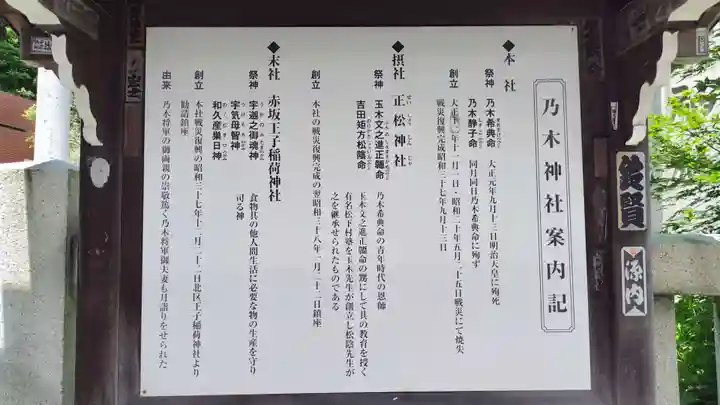 乃木神社案内記
◆本社
祭神 乃木希典命 大正元年九月十三日明治天皇に殉死
乃木静子命 同月同日乃木希典命に殉ず
創立 大正十二年十一月一日・昭和二十年五月二十五日戦災にて焼失
戦災復興完成昭和三十七年九月十三日
◆摂社 正松神社
せいしょうじんじゃ
祭神 玉木文之進正韞命 乃木希典命の青年時代の恩師
吉田矩方松陰命 玉木文之進正韞命の甥にして其の教育を授く
有名松下村塾を玉木先生が創立し松陰先生が
之を継承せられたものである
創立 本社の戦災復興完成の翌昭和三十八年一月二十二日鎮座
◆末社 赤坂王子稲荷神社
祭神 宇迦之御魂神 食物其の他人間生活に必要な物の生産を守り
宇気母智神 司る神
和久産巣日神
創立 本社戦災復興の昭和三十七年十二月二十二日北区王子稲荷神社より
勧請鎮座
由来 乃木将軍の御両親の崇敬篤く乃木将軍御夫妻も月詣りをせられた
鈴賢
係内